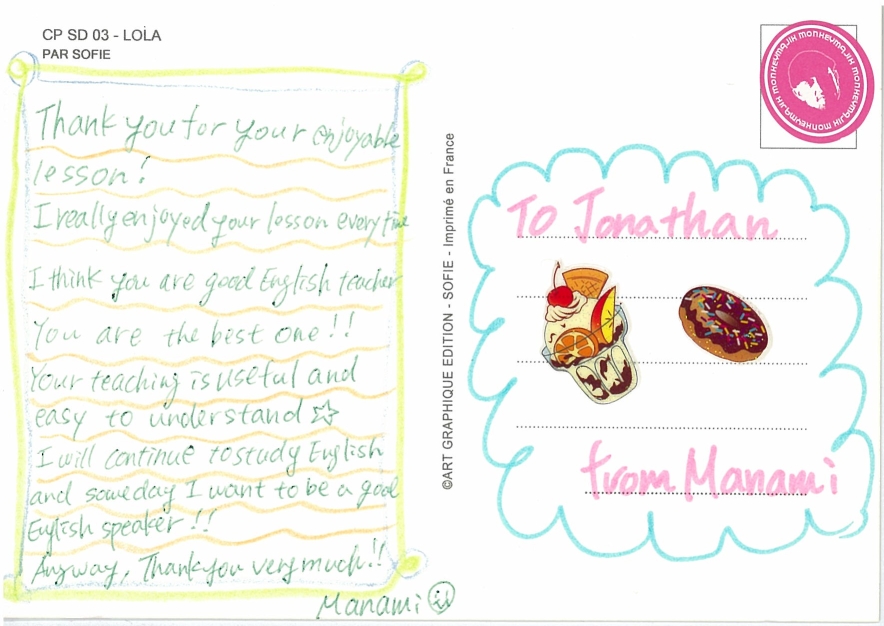 CP SD 03 - LOLA
PAR SOFIE
Thank you for your enjoyable
lesson!
I really enjoyed your lesson every time
I think you are good English teacher
You are the best one!!
Your teaching is useful and
easy to understand ☆
I will continue to study English
and someday I want to be a good
English speaker!!
Anyway, Thank you very much!!
Manami
©ART GRAPHIQUE EDITION - SOFIE - Imprimé en France
monkeymajik monkeymajik monkeymajik
To Jonathan
from Manami